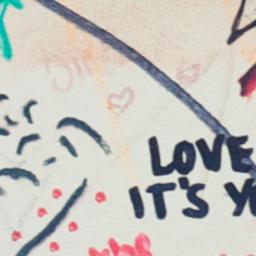 LOVE
IT'S